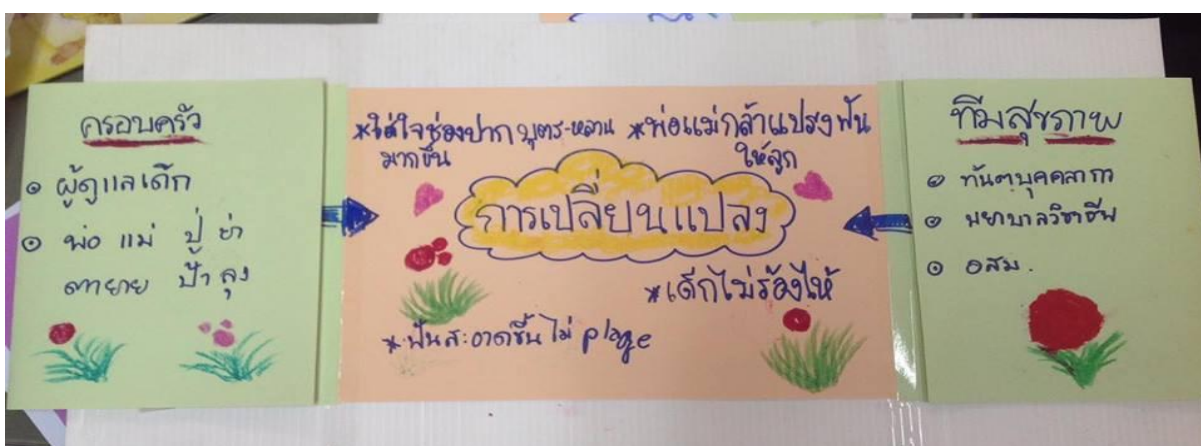 ครอบครัว
๏ ผู้ดูแลเด็ก
๏ พ่อ แม่ ปู่ ย่า
ตายาย ป้า ลุง
*ใส่ใจช่องปาก บุตร-หลาน
มากขึ้น
*พ่อแม่กล้าแปรงฟัน
ให้ลูก
การเปลี่ยนแปลง
*เด็กไม่ร้องไห้
*ฟันสะอาดขึ้น ไม่ plage
ทีมสุขภาพ
๏ ทันตบุคคลากา
๏ พยาบาลวิชาชีพ
๏ อสม.